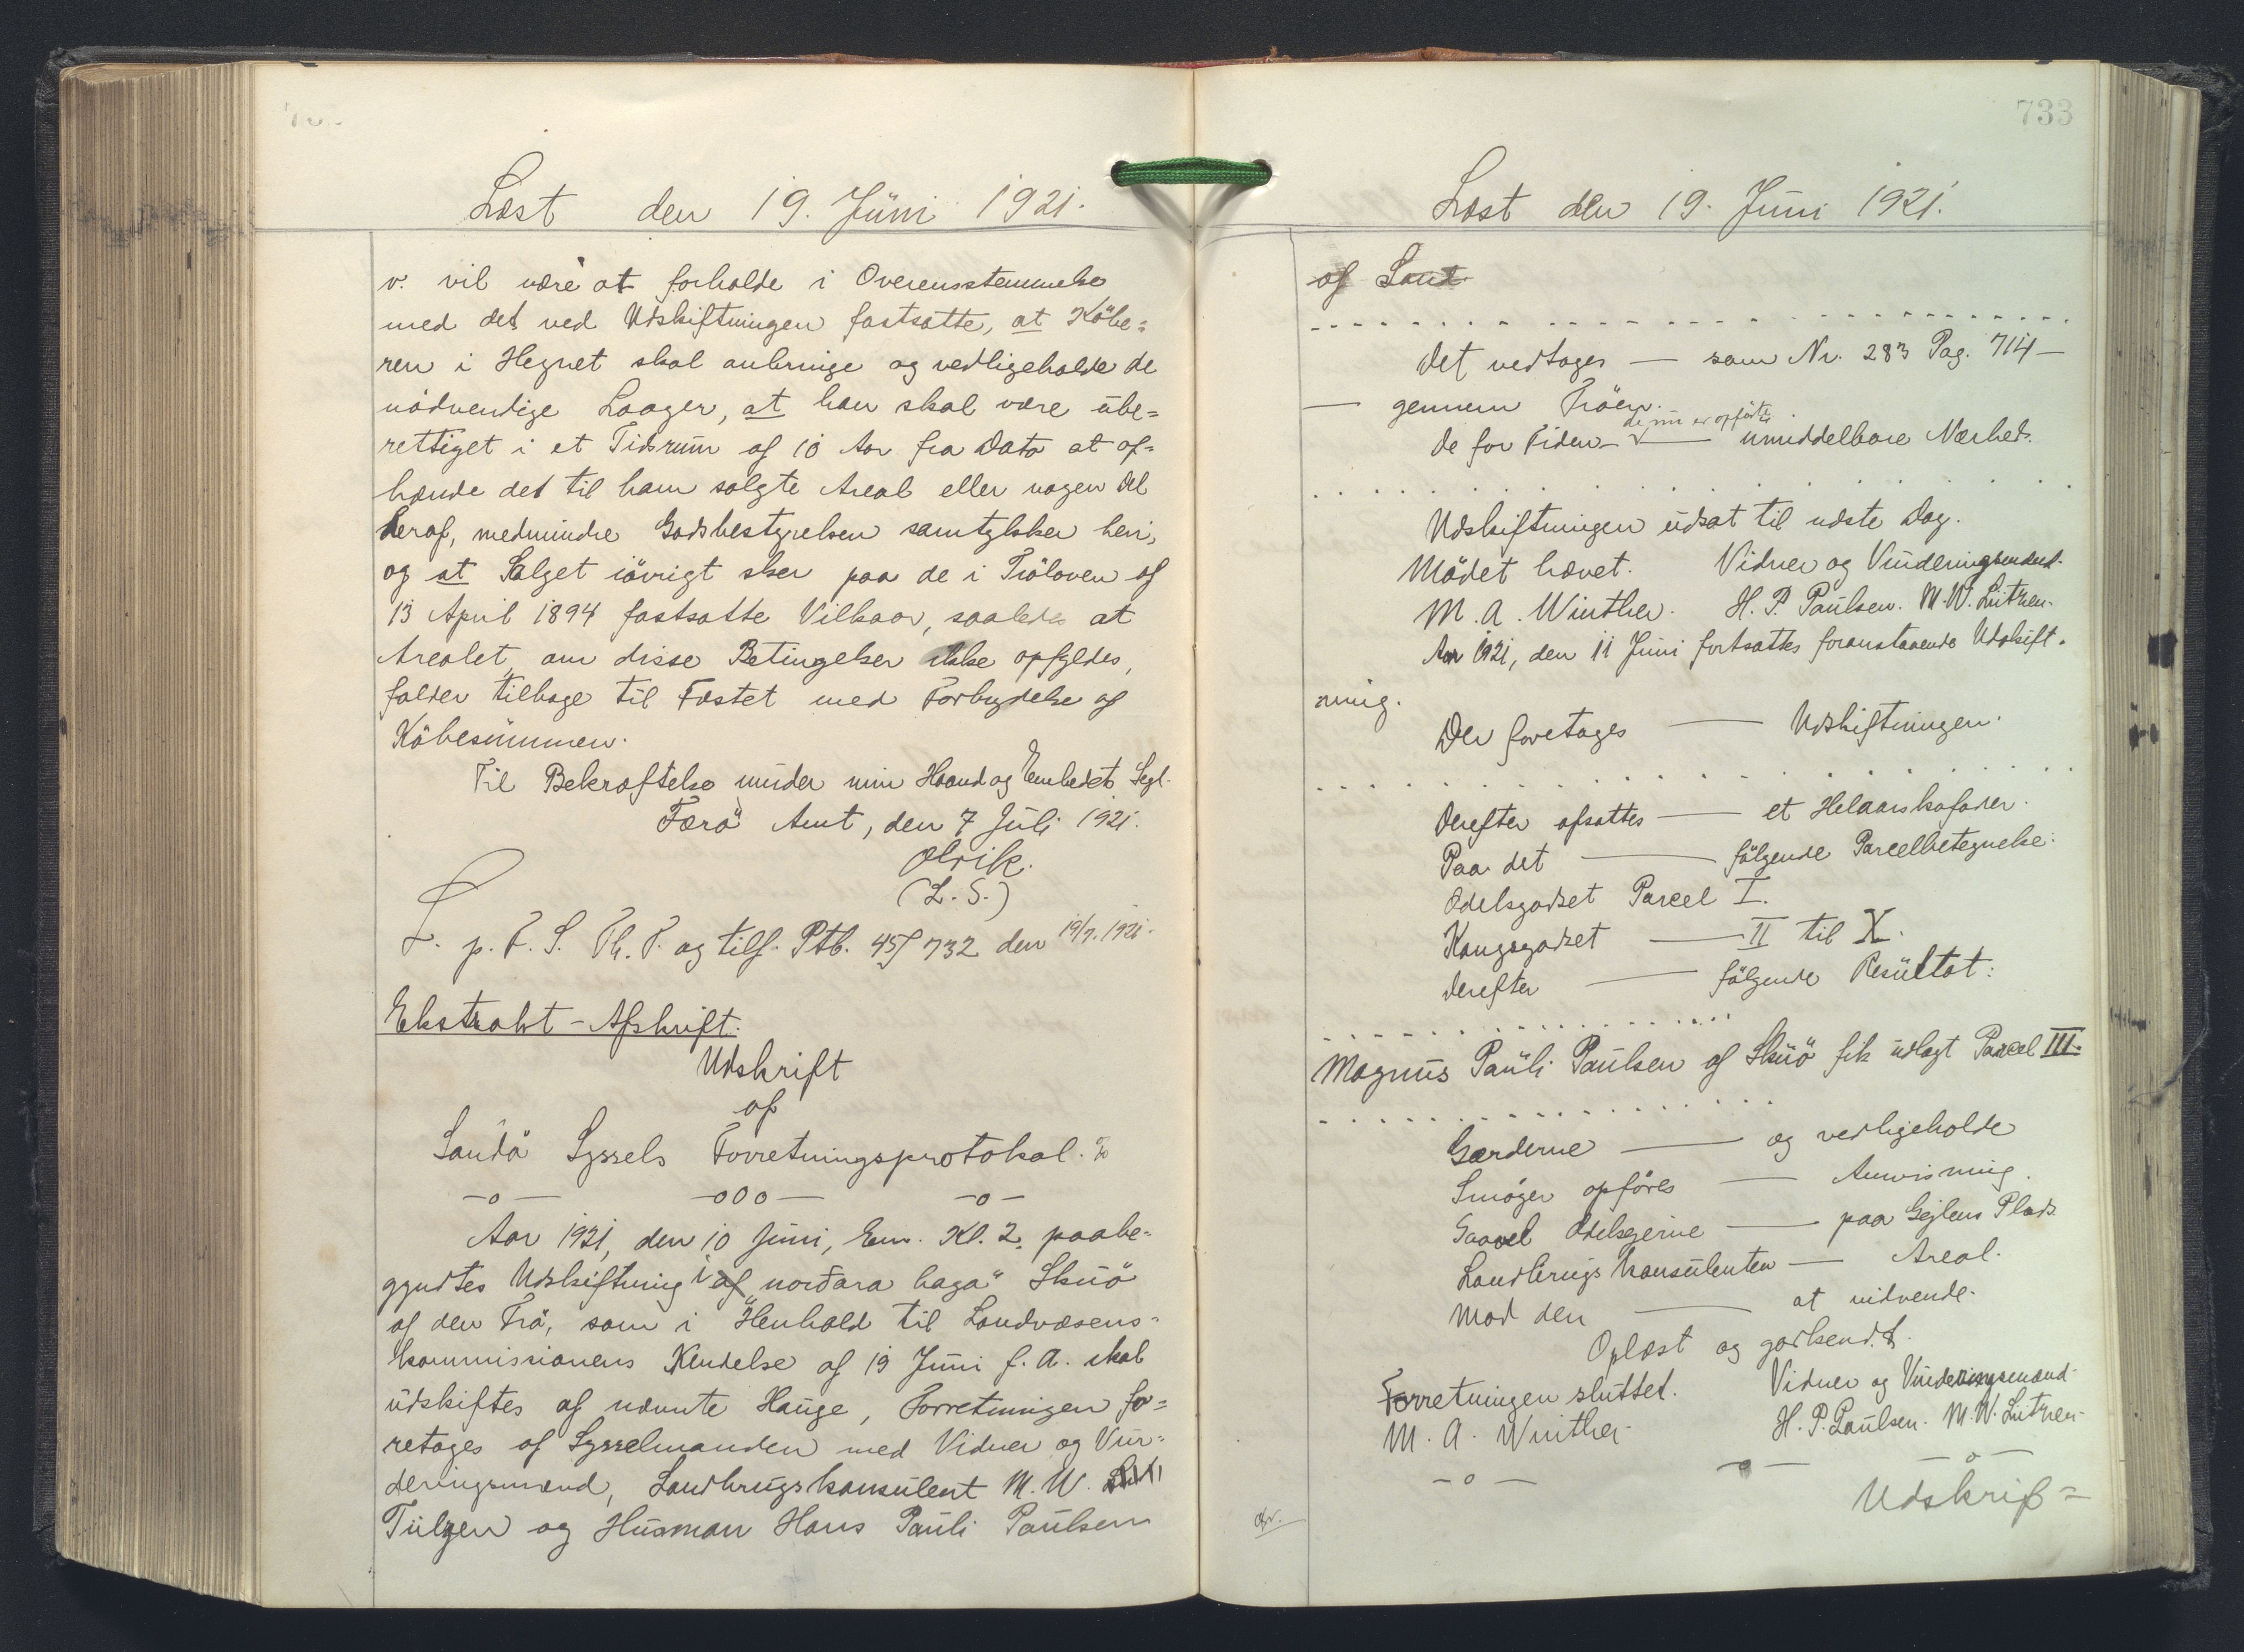 Læst den 19. Juni 1921.
v. vil være at forholde i Overensstemmelse
med det ved Udskiftningen fastsatte, at Købe=
ren i Hegnet skal anbringe og vedligeholde de
nødvendige Laager, at han skal være ube=
rettiget i et Tidsrum af 10 Aar fra Dato at af=
hænde det til ham solgte Areal eller nogen Del
deraf, medmindre Godsbestyrelsen samtykker heri,
og at Salget iøvrigt sker paa de i Trøloven af
13 April 1894 fastsatte Vilkaar, saaledes at
Arealet, om disse Betingelser ikke opfyldes,
falder tilbage til Fæstet med Forbrydelse af
Købesummen.
Til Bekræftelse under min Haand og Embedets Segl.
Færø Amt, den 7 Juli 1921.
Olrik.
(L. S.)
L. p. F. S. Th. P. og tilf. Ptb. 45/732 den 19/7. 1921.
Ekstrakt-Afskrift.
Udskrift
af
Sandø Syssels Forretningsprotokol.
-o- -ooo- -o-
Aar 1921, den 10 Juni, Em. Kl. 2, paabe-
gyndtes Udskiftning i af "norðara haga" Skuø
af den Trø, som i Henhold til Landvæsens-
kommissionens Kendelse af 19 Juni f. A. skal
udskiftes af nævnte Hauge, Forretningen fo=
retages af Sysselmanden med Vidner og Vur=
deringsmænd, Landbrugskonsulent M. W.
Tulzen og Husman Hans Pauli Paulsen
733
Læst den 19. Juni 1921.
af Sand.
Det vedtages — som Nr. 283 Pag. 714 —
— gennem Trøen.
de nu er opførte
De for Tiden — umiddelbare Nærhed.
Udskiftningen udsat til næste Dag.
Mødet hævet. Vidner og Vurderingsmænd.
M. A. Winther. H. P. Paulsen. M. W. Lützen.
Aar 1921, den 11 Juni fortsattes foranstaaende Udskift-
ning.
Der foretages — Udskiftningen.
Derefter afsattes — et Helaarskofoder.
Paa det — følgende Parcelbetegnelse:
Odelsgodset Parcel I.
Kongsgodset — II til X.
Derefter — følgende Resultat:
Magnus Pauli Paulsen af Skuø fik udlagt Parcel III.
Gærderne — og vedligeholde
Smøger opføres — Anvisning.
Saavel Odelsejerne — paa Gejlens Plads
Landbrugskonsulenten — Areal.
Mod den — at indvende.
Oplæst og godkendt.
Forretningen sluttet. Vidner og Vurderingsmænd.
M. A. Winther. H. P. Paulsen. M. W. Lützen.
-o- -o- -o-
Udskrift=